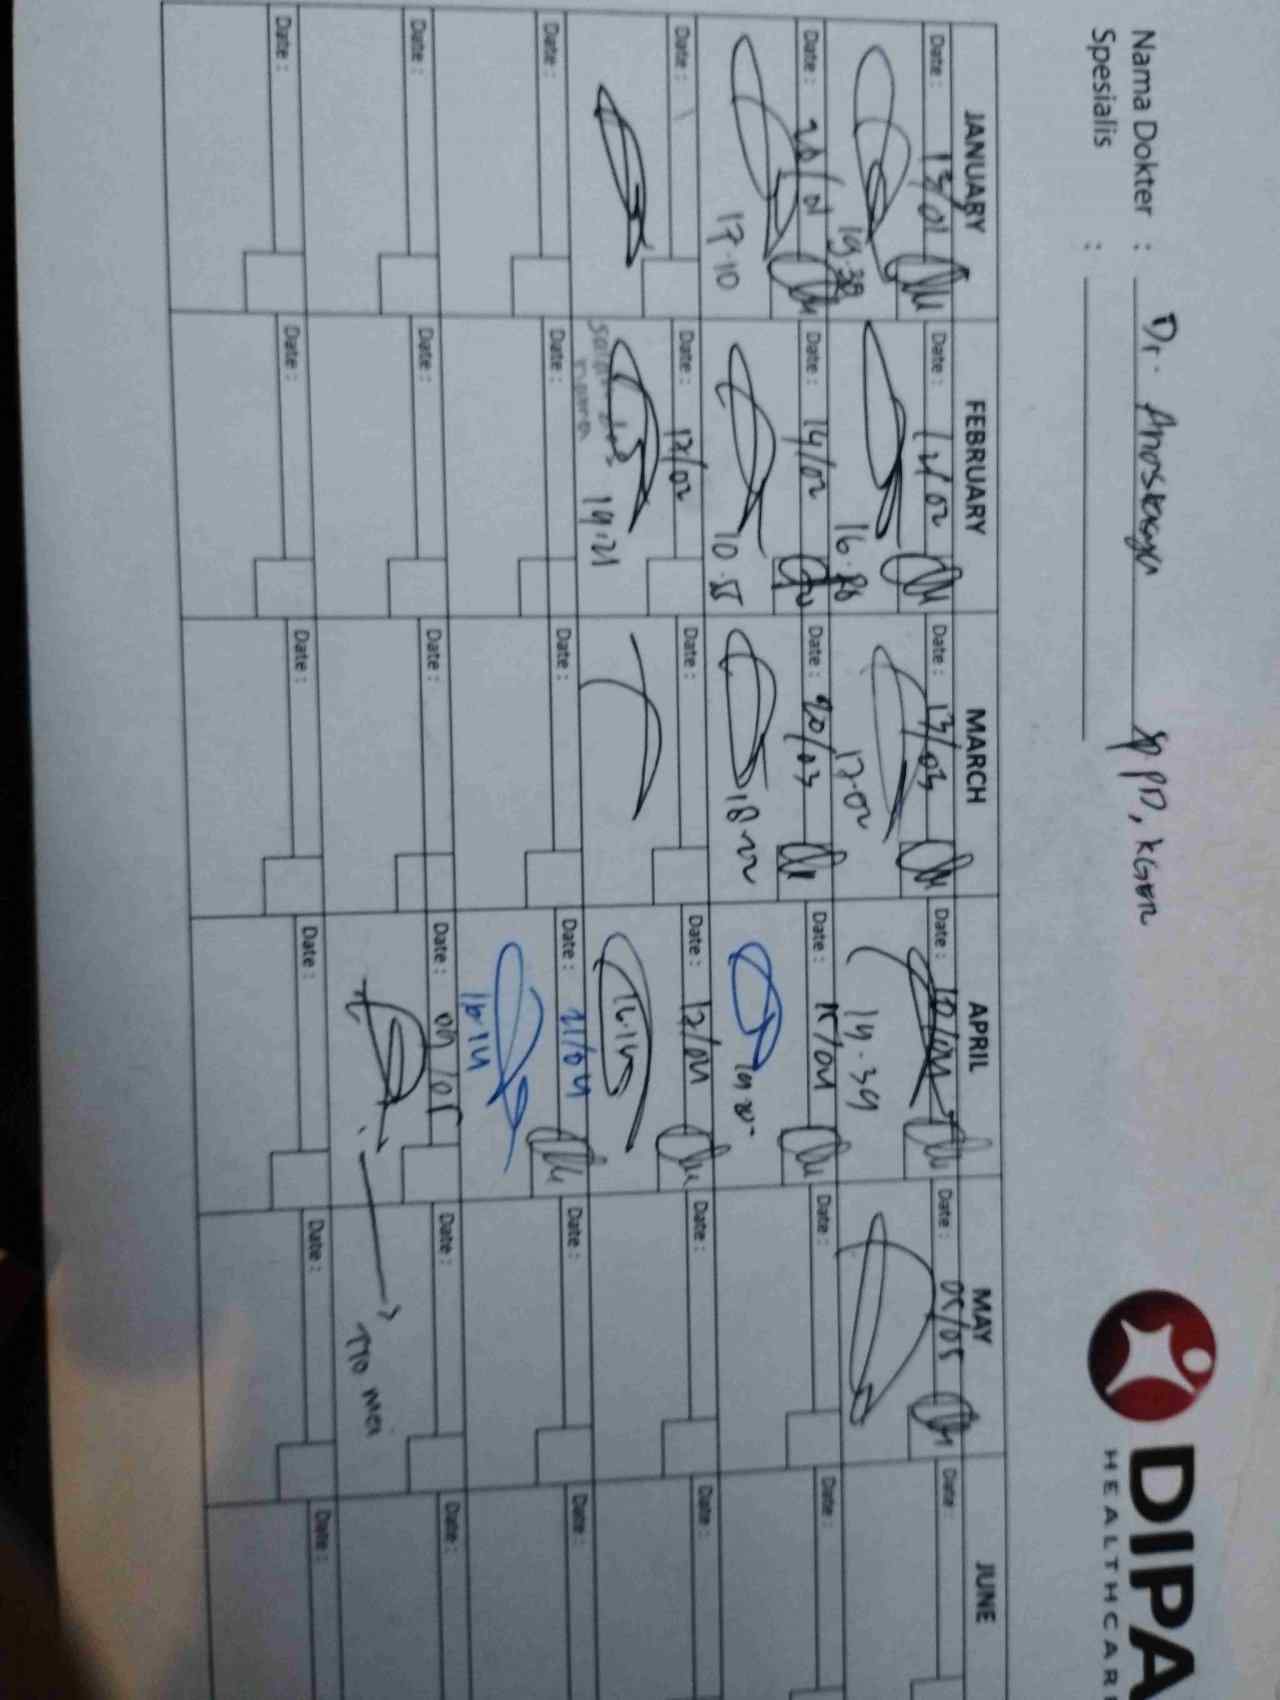 DIPA
HEALTHCARE
Nama Dokter : Dr.
Sp PD, KGEH
Spesialis :
JANUARY FEBRUARY MARCH APRIL MAY JUNE
Date: 13/01 Date: 12/02 Date: 13/03 Date: 10/04 Date: 05/05 Date:
19.38 16.58 17.02 19.39
Date: 20/01 Date: 14/02 Date: 20/03 Date: 15/04 Date: Date:
17.10 10.55 18.22
Date: Date: 17/02 Date: Date: 17/04 Date: Date:
19.21 16.14
Date: Date: Date: Date: 21/04 Date: Date:
16.14
Date: Date: Date: Date: 09/05 Date: Date:
TTD mei
Date: Date: Date: Date: Date: Date: